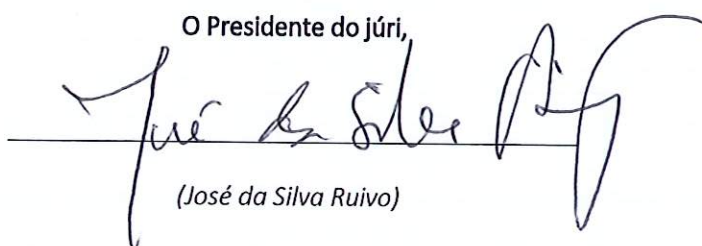 O Presidente do júri,
José da Silva
(José da Silva Ruivo)